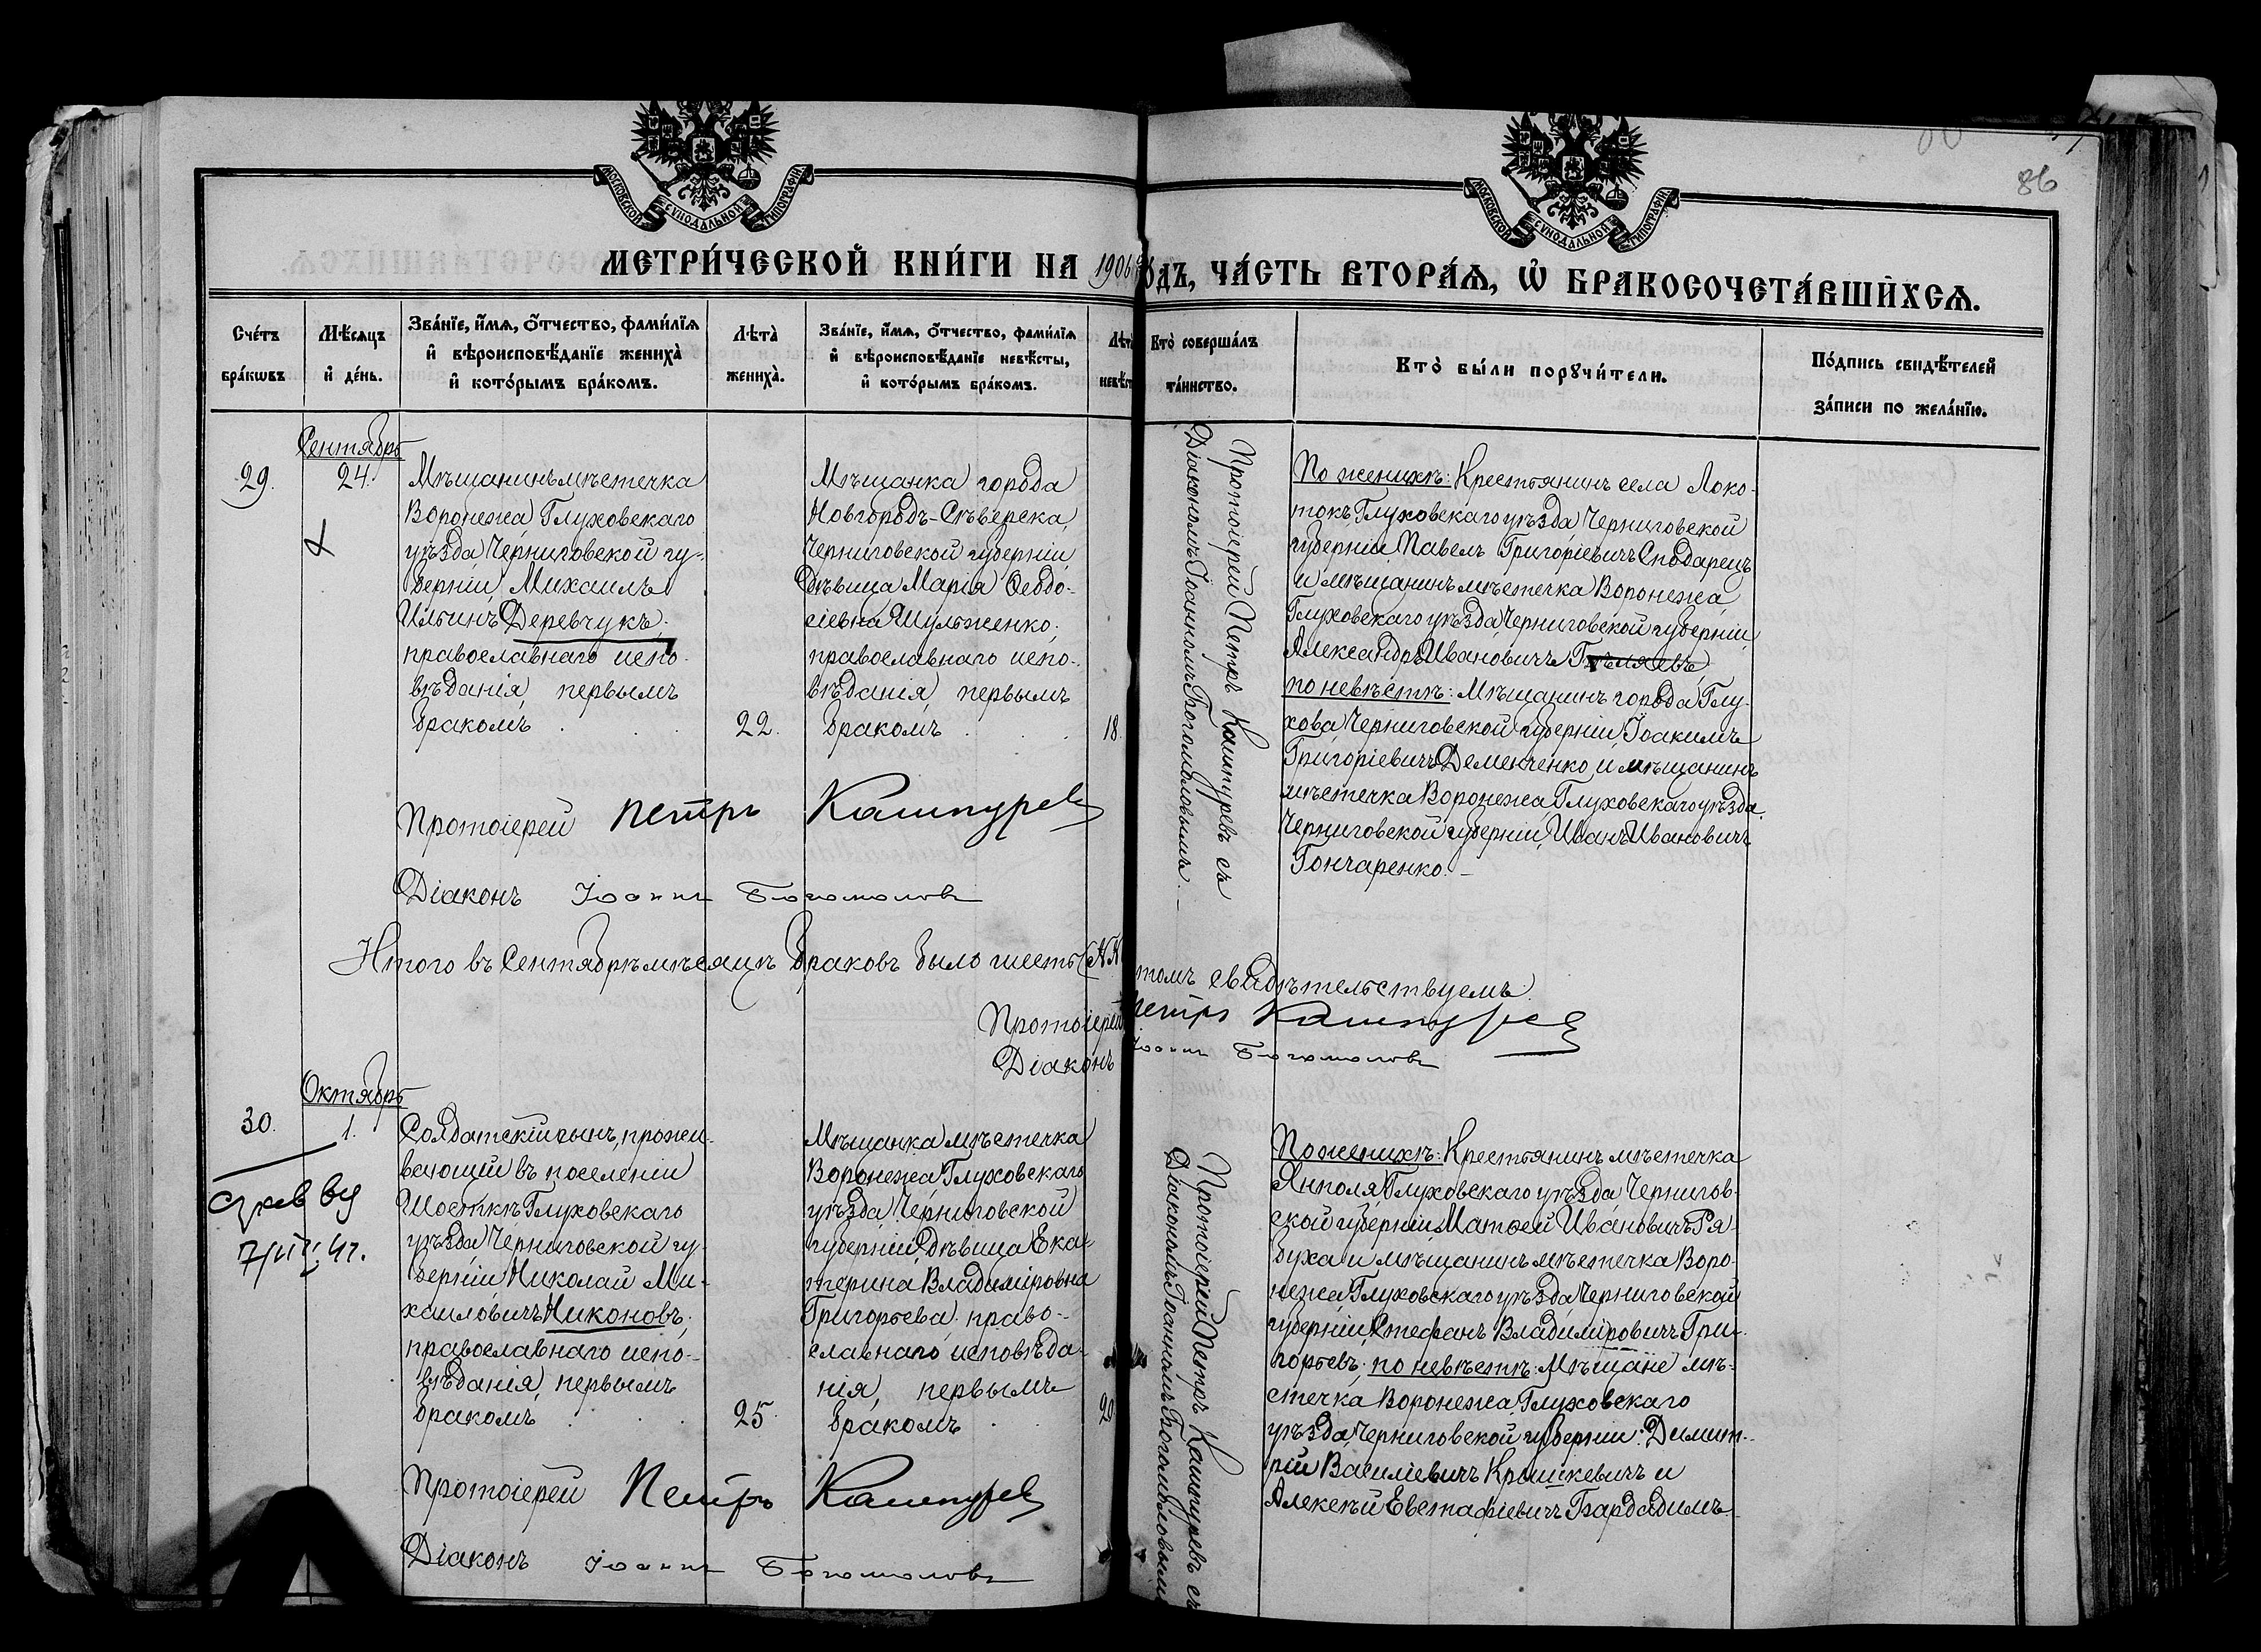 МОСКОВСКОЙ СѴНОДАЛЬНОЙ ТИПОГРАФІИ
МОСКОВСКОЙ СѴНОДАЛЬНОЙ ТИПОГРАФІИ
86
МЕТРИ́ЧЕСКОЙ КНИ́ГИ НА 1906 ГОДЪ, ЧА́СТЬ ВТОРА́Ѧ, Ѡ҆ БРАКОСОЧЕТА́ВШИХСѦ.
Сче́тъ бра́кѡвъ
Мѣ́сѧцъ и҆ де́нь.
Зва́нїе, и҆́мѧ, о҆́тчество, фами́лїѧ
и҆ вѣроисповѣ́данїе жениха̀
и҆ кото́рымъ бра́комъ.
Лѣта̀ жениха̀.
Зва́нїе, и҆́мѧ, о҆́тчество, фами́лїѧ
и҆ вѣроисповѣ́данїе невѣ́сты,
и҆ кото́рымъ бра́комъ.
Лѣта̀ невѣст
Кто̀ соверша́лъ
та́инство.
Кто̀ бы́ли порꙋчи́тели.
По́дпись свидѣ́телей
за́писи по жела́нїю.
Сентябрь
29.
24.
Мѣщанинъ мѣстечка
Воронежа Глуховскаго
уѣзда Черниговской гу-
берніи Михаилъ
Ильинъ Деревчукъ,
православнаго испо-
вѣданія, первымъ
бракомъ
22.
Мѣщанка города
Новгородъ-Сѣверска,
Черниговской губерніи,
дѣвица Марія Ѳеодо-
сіевна Шульженко,
православнаго испо-
вѣданія, первымъ
бракомъ
18.
Протоіерей Петръ Кашпуревъ съ
Діакономъ Іоанномъ Богомоловымъ.
По женихѣ: Крестьянинъ села Локо-
токъ Глуховскаго уѣзда Черниговской
губерніи Павелъ Григоріевичъ Сподарецъ
и мѣщанинъ мѣстечка Воронежа,
Глуховскаго уѣзда Черниговской губерніи
Александръ Ивановичъ
по невѣстѣ: Мѣщанинъ города Глу-
хова Черниговской губерніи Іоакимъ
Григоріевичъ Деменченко и мѣщанинъ
мѣстечка Воронежа Глуховскаго уѣзда
Черниговской губерніи, Иванъ Ивановичъ
Гончаренко.
Протоіерей Петръ Кашпуревъ
Діаконъ Іоаннъ Богомоловъ
Итого въ Сентябрѣ мѣсяцѣ браковъ было шесть
томъ свидѣтельствуемъ:
Протоіерей Петръ Кашпуревъ
Діаконъ Іоаннъ Богомоловъ
Октябрь
30.
1.
Солдатскій сынъ, прожи-
вающій въ поселеніи
Шосткѣ Глуховскаго
уѣзда Черниговской гу-
берніи Николай Ми-
хаиловичъ Никоновъ,
православнаго испо-
вѣданія, первымъ
бракомъ
25.
Мѣщанка мѣстечка
Воронежа Глуховскаго
уѣзда Черниговской
губерніи, дѣвица Ека-
терина Владиміровна
Григорьева, право-
славнаго исповѣда-
нія, первымъ
бракомъ
20
Протоіерей Петръ Кашпуревъ съ
Діакономъ Іоанномъ Богомоловым
По женихѣ: Крестьянинъ мѣстечка
Янполя Глуховскаго уѣзда Чернигов-
ской губерніи Матѳей Ивановичъ Ря-
буха и мѣщанинъ мѣстечка Воро-
нежа Глуховскаго уѣзда Черниговской
губерніи, Стефанъ Владиміровичъ Гри-
горьевъ; по невѣстѣ: Мѣщане мѣ-
стечка Воронежа Глуховскаго
уѣзда, Черниговской губерніи: Димит-
рій Василіевичъ и
Алексѣй Евстафіевичъ Бардадимъ.
Протоіерей Петръ Кашпуревъ
Діаконъ Іоаннъ Богомоловъ